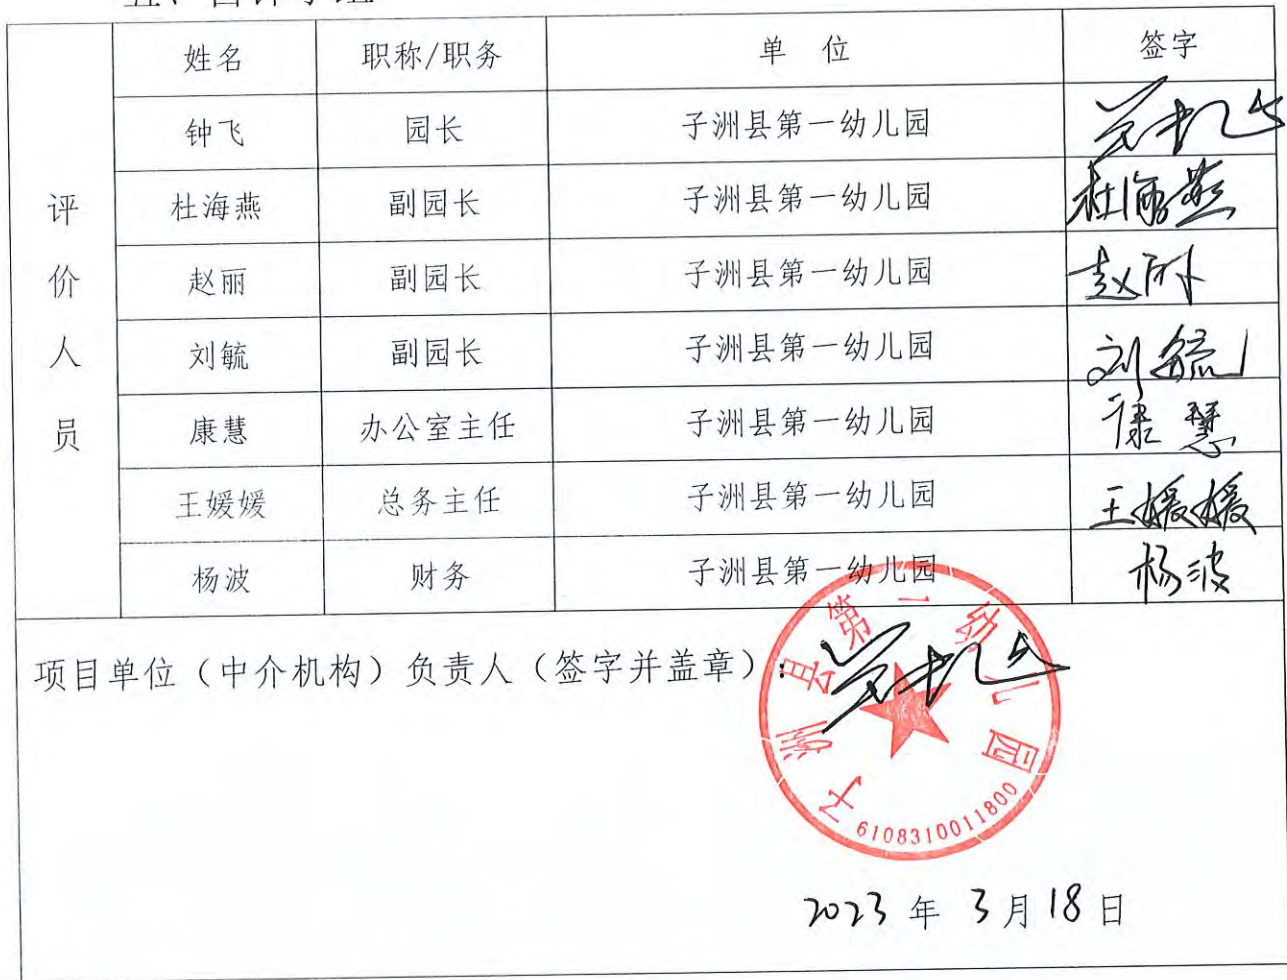 姓名 职称/职务 单 位 签字
钟飞 园长 子洲县第一幼儿园
杜海燕 副园长 子洲县第一幼儿园 杜海燕
赵丽 副园长 子洲县第一幼儿园 赵丽
刘毓 副园长 子洲县第一幼儿园 刘毓
康慧 办公室主任 子洲县第一幼儿园 康慧
王媛媛 总务主任 子洲县第一幼儿园 王媛媛
杨波 财务 子洲县第一幼儿园 杨波
评价人员
项目单位（中介机构）负责人（签字并盖章）：
子洲县第一幼儿园
6108310011800
2023年3月18日